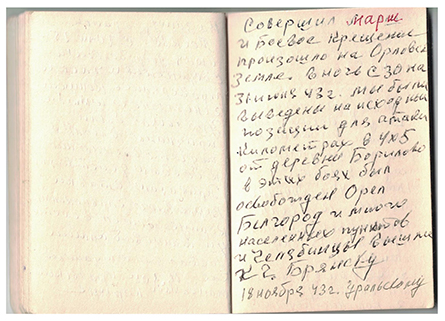 Совершил марш
и боевое крещение
произошло на Орловск
земле. В ночь с 30 на
31 июля 43 г. мы были
выведены на исходные
позиции для атаки
километрах в 4х5
от деревни Борилово
в этих боях был
освобожден Орел
Белгород и много
населенных пунктов
и Челябинцы вышли
к г. Брянску
18 ноября 43 г. Уральскому